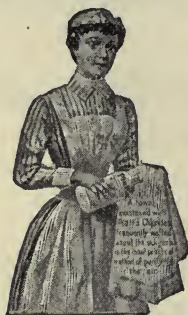 A towel
moistened with
Platt's Chlorides
frequently waved
about the sick-room
is the most practical
method of purifying
the air